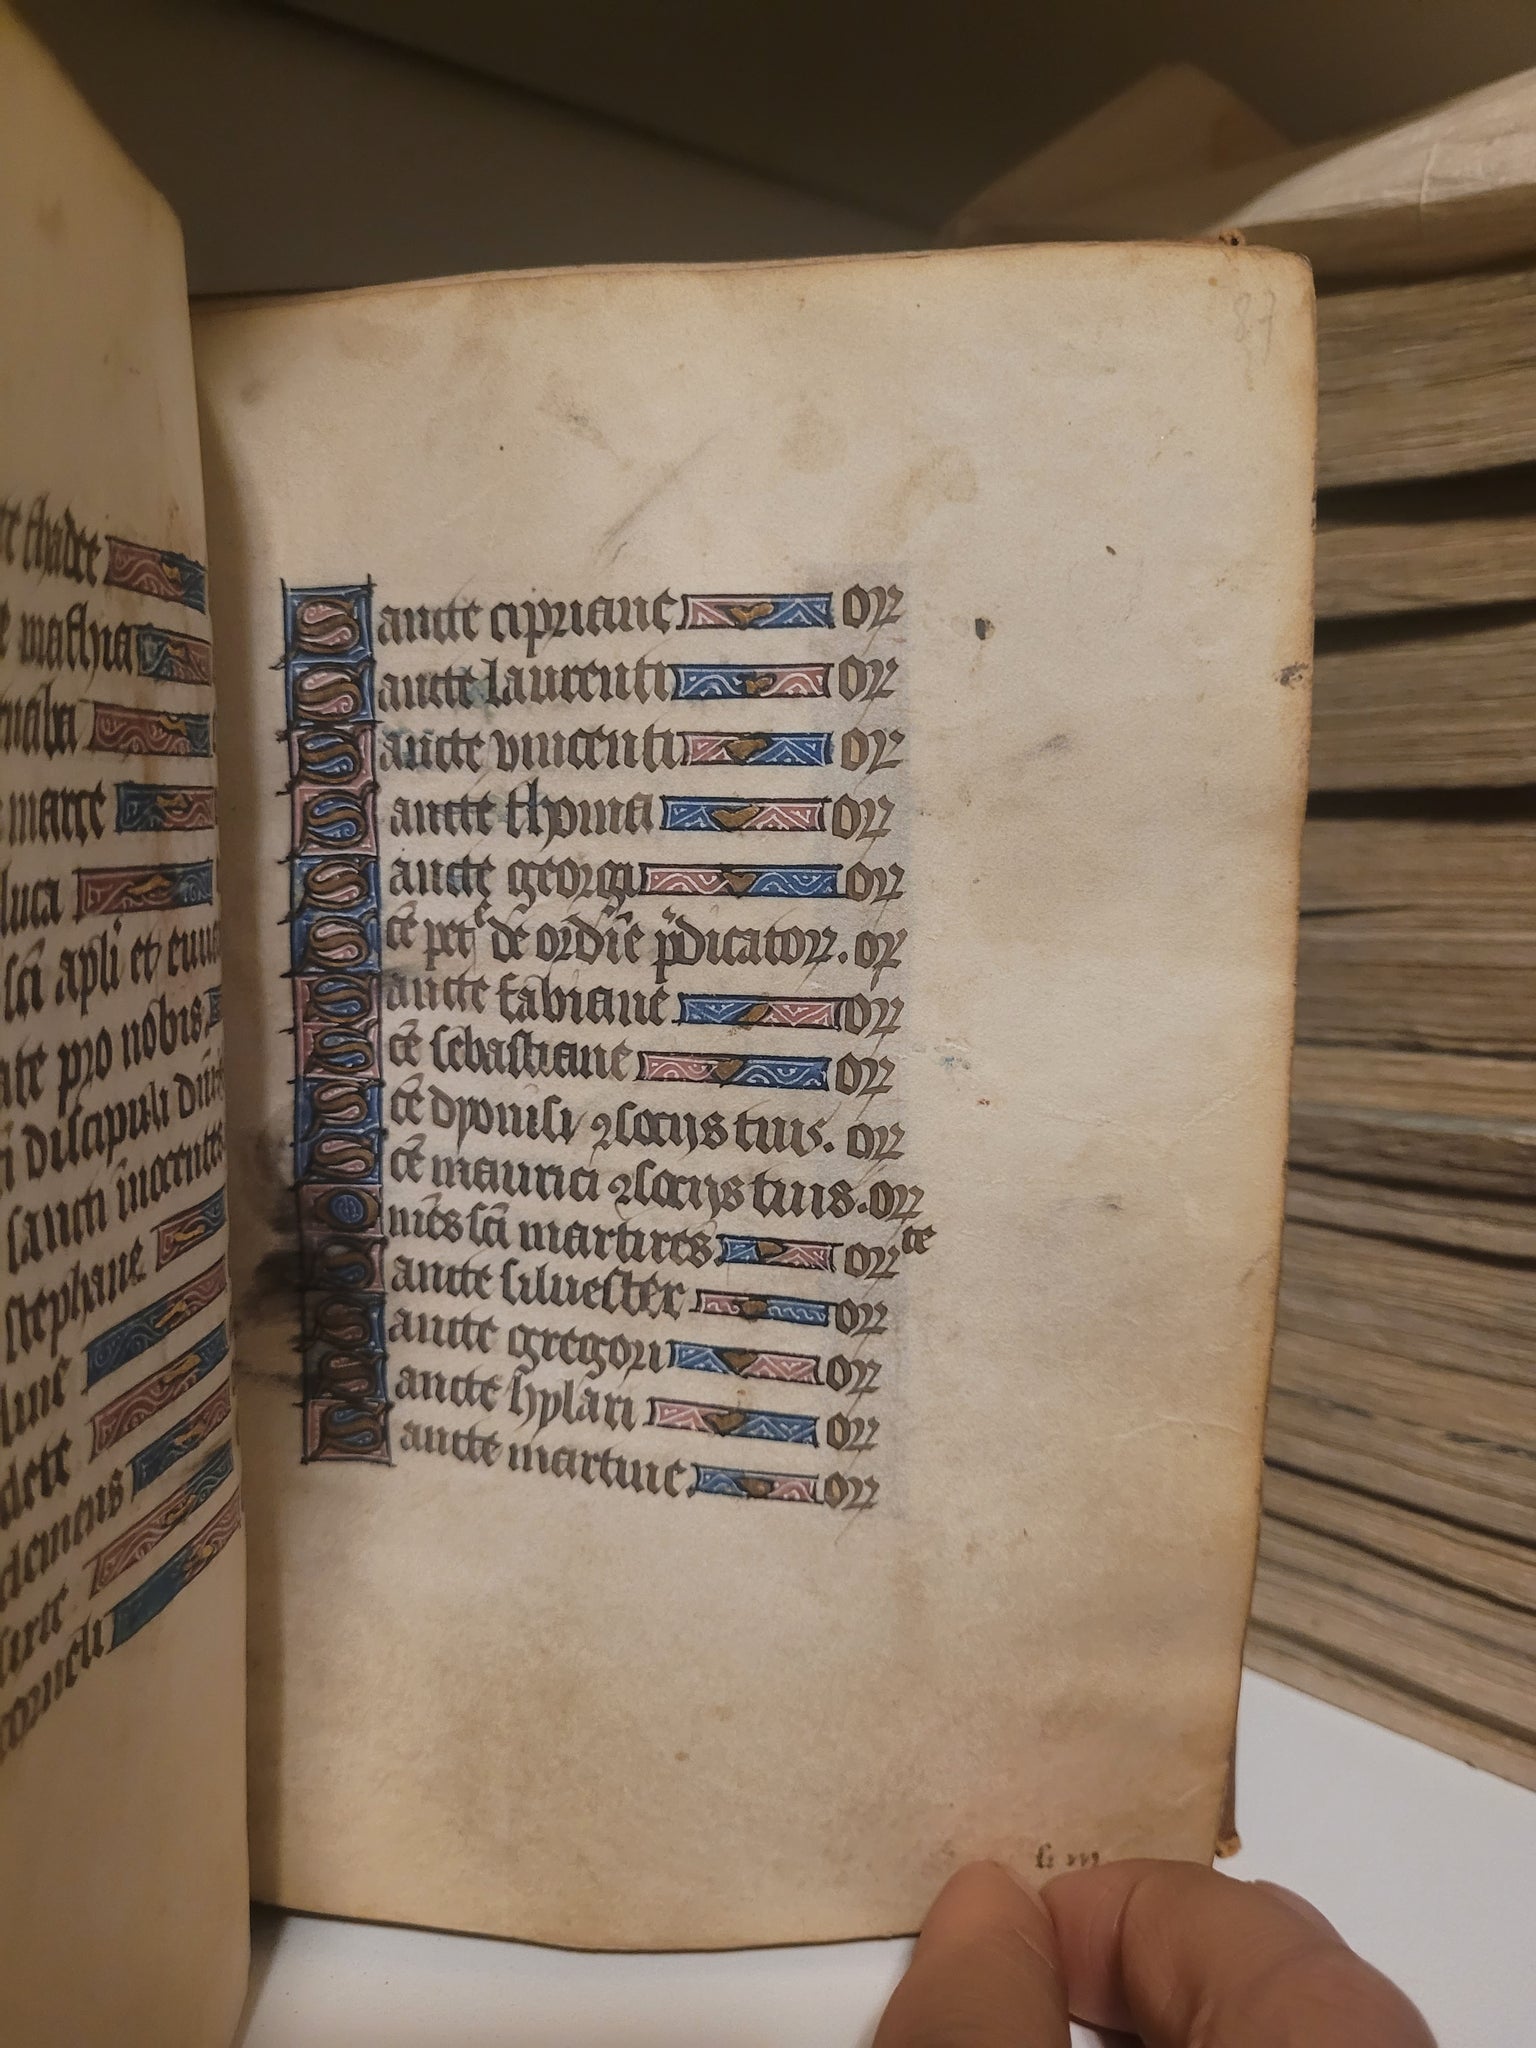 te thadee
e mathia
rnaba
e marce
luca
sci apli et euua
ate pro nobis
i discipuli dni
sancti inocentes
stephane
line
clete
clemens
sixte
corneli
87
Sancte cipriane or
Sancte laurenti or
Sancte vincenti or
Sancte thoma or
Sancte georgi or
Sce pet de ordie pdicator. or
Sancte fabiane or
Sce sebastiane or
Sce dyonisi 2 socijs tuis. or
Sce maurici 2 socijs tuis. or
Omes sci martires or te
Sancte siluester or
Sancte gregori or
Sancte hylari or
Sancte martine or